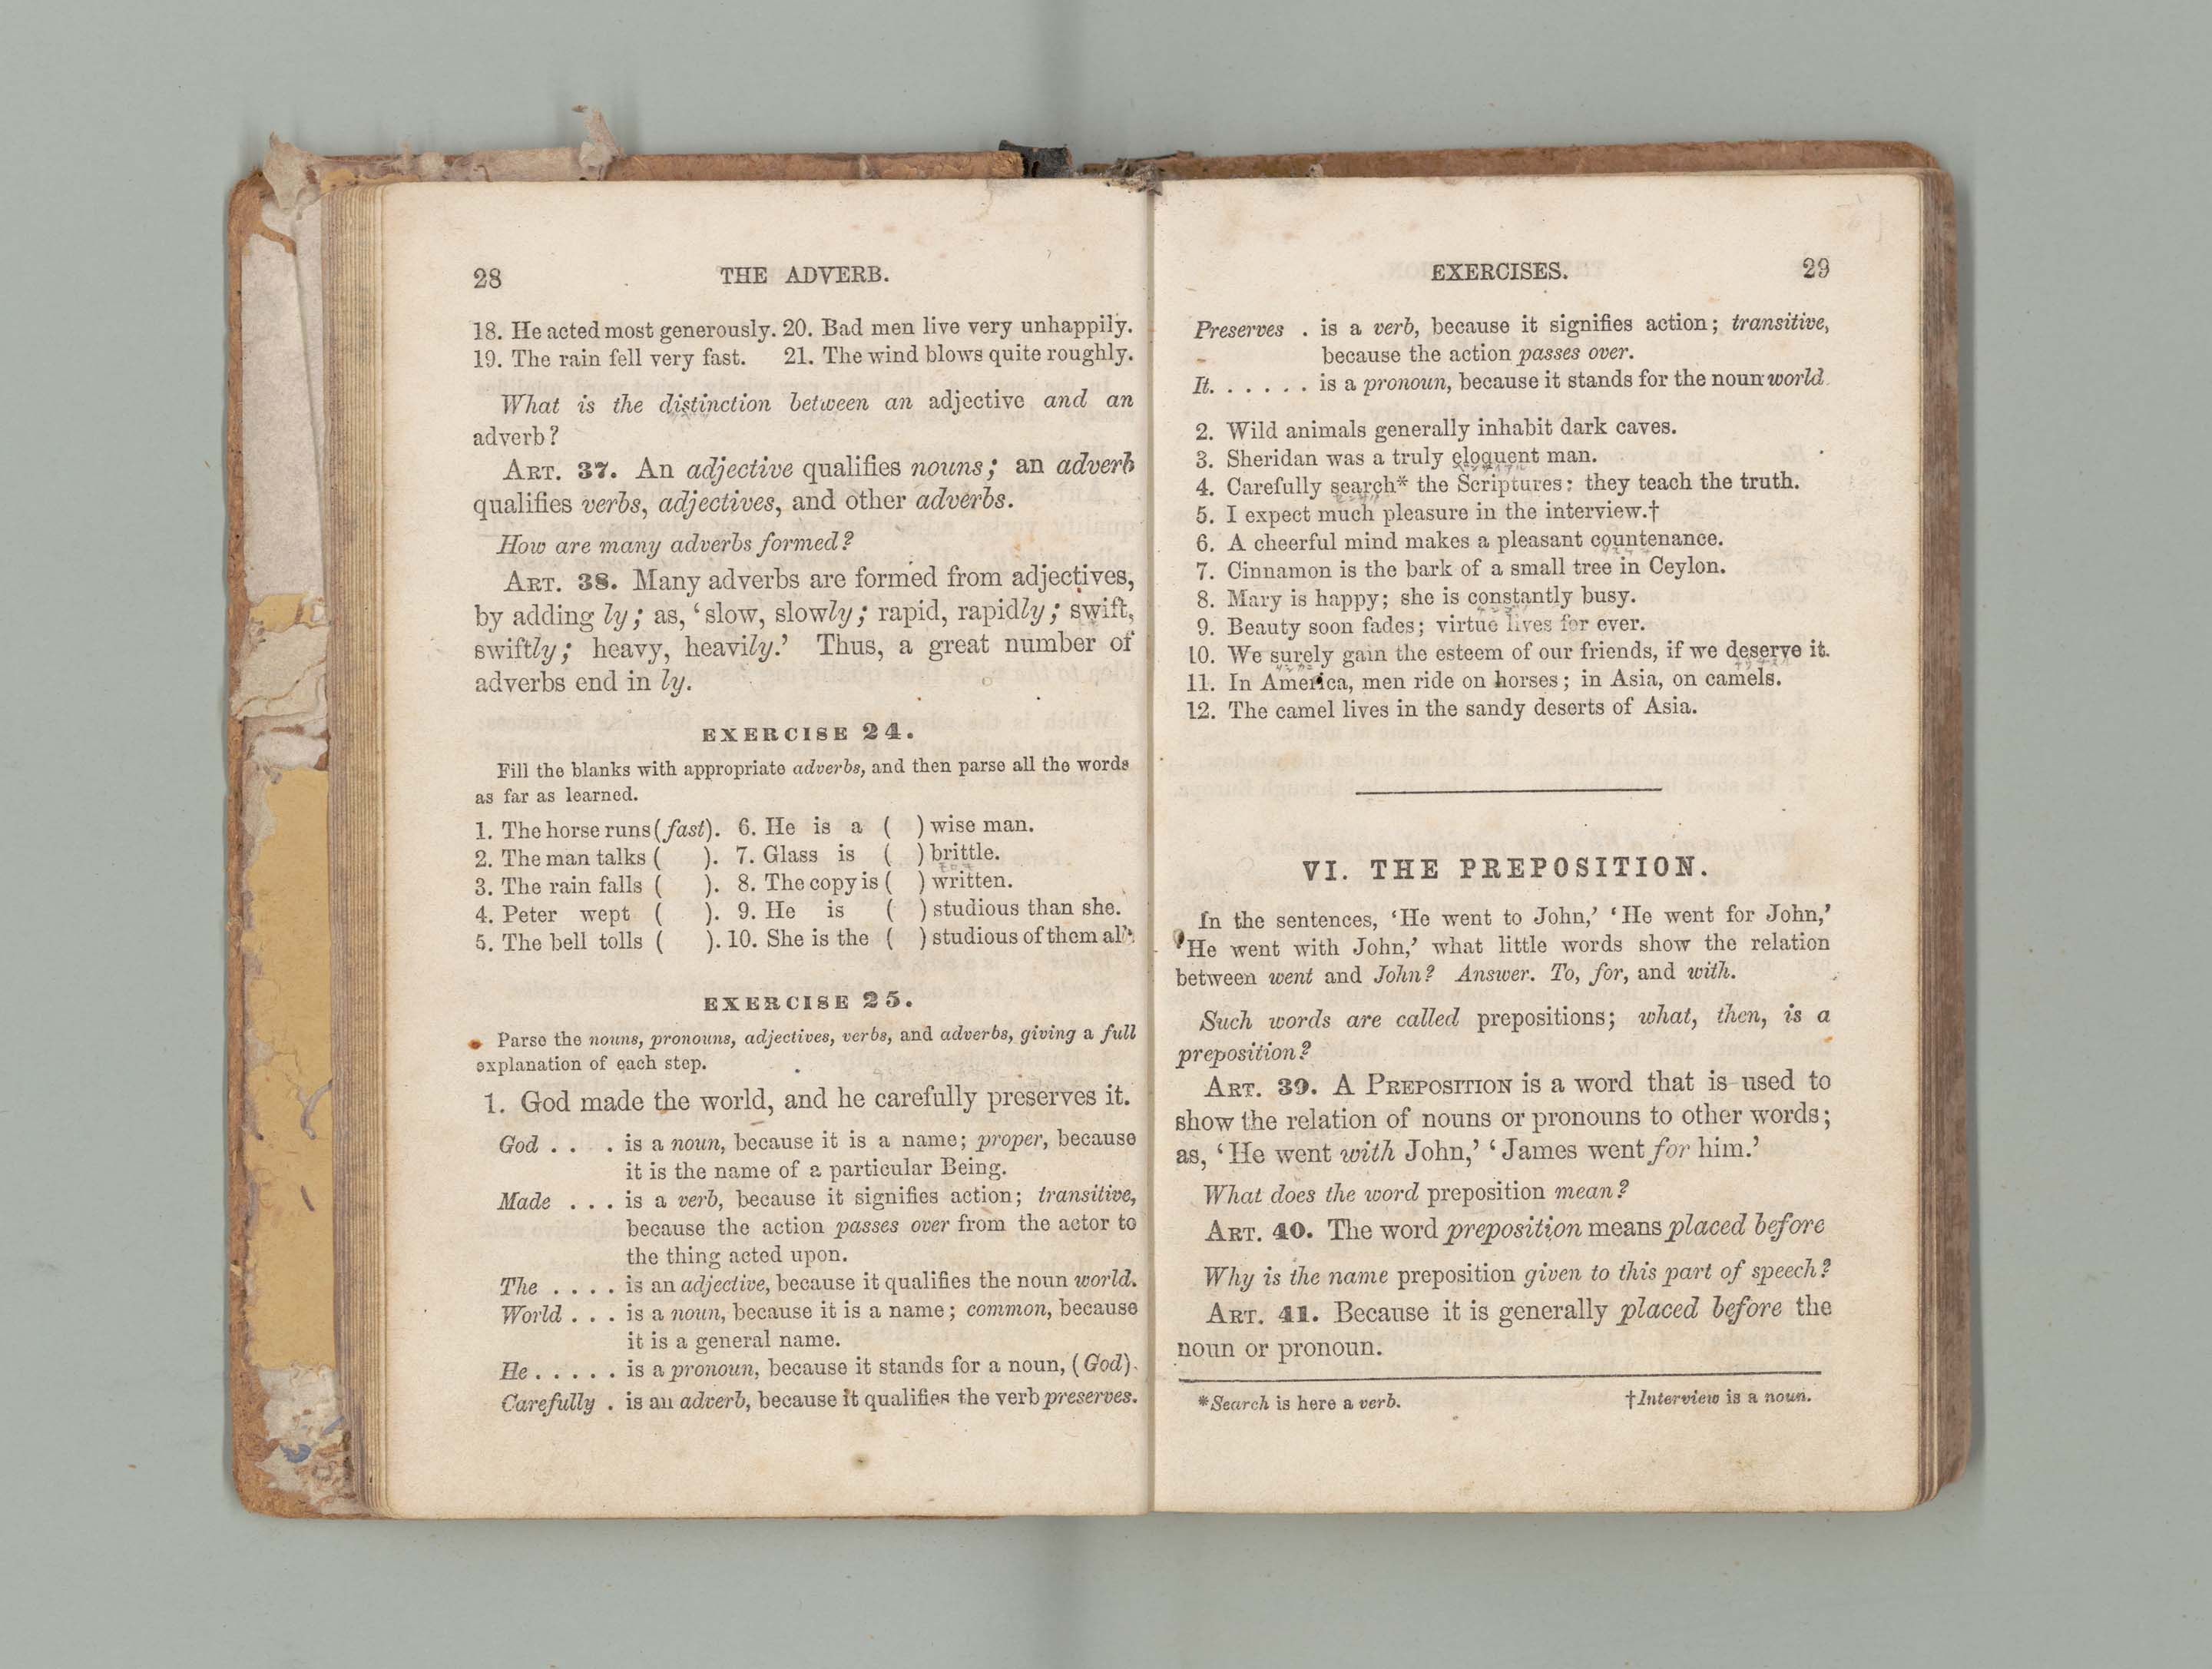 28 THE ADVERB.
18. He acted most generously. 20. Bad men live very unhappily.
19. The rain fell very fast. 21. The wind blows quite roughly.
What is the distinction between an adjective and an
adverb?
ART. 37. An adjective qualifies nouns; an adverb
qualifies verbs, adjectives, and other adverbs.
How are many adverbs formed?
ART. 38. Many adverbs are formed from adjectives,
by adding ly; as, ‘slow, slowly; rapid, rapidly; swift,
swiftly; heavy, heavily.’ Thus, a great number of
adverbs end in ly.
EXERCISE 24.
Fill the blanks with appropriate adverbs, and then parse all the words
as far as learned.
1. The horse runs (fast). 6. He is a ( ) wise man.
2. The man talks ( ). 7. Glass is ( ) brittle.
3. The rain falls ( ). 8. The copy is ( ) written.
4. Peter wept ( ). 9. He is ( ) studious than she.
5. The bell tolls ( ). 10. She is the ( ) studious of them all.
EXERCISE 25.
Parse the nouns, pronouns, adjectives, verbs, and adverbs, giving a full
explanation of each step.
1. God made the world, and he carefully preserves it.
God . . . is a noun, because it is a name; proper, because
it is the name of a particular Being.
Made . . . is a verb, because it signifies action; transitive,
because the action passes over from the actor to
the thing acted upon.
The . . . . is an adjective, because it qualifies the noun world.
World . . . is a noun, because it is a name; common, because
it is a general name.
He . . . . . is a pronoun, because it stands for a noun, (God).
Carefully . is an adverb, because it qualifies the verb preserves.
EXERCISES. 29
Preserves . is a verb, because it signifies action; transitive,
because the action passes over.
It. . . . . . is a pronoun, because it stands for the noun world
2. Wild animals generally inhabit dark caves.
3. Sheridan was a truly eloquent man.
4. Carefully search* the Scriptures: they teach the truth.
5. I expect much pleasure in the interview.†
6. A cheerful mind makes a pleasant countenance.
7. Cinnamon is the bark of a small tree in Ceylon.
8. Mary is happy; she is constantly busy.
9. Beauty soon fades; virtue lives for ever.
10. We surely gain the esteem of our friends, if we deserve it.
11. In America, men ride on horses; in Asia, on camels.
12. The camel lives in the sandy deserts of Asia.
VI. THE PREPOSITION.
In the sentences, ‘He went to John,’ ‘He went for John,’
‘He went with John,’ what little words show the relation
between went and John? Answer. To, for, and with.
Such words are called prepositions; what, then, is a
preposition?
ART. 39. A PREPOSITION is a word that is used to
show the relation of nouns or pronouns to other words;
as, ‘He went with John,’ ‘James went for him.’
What does the word preposition mean?
ART. 40. The word preposition means placed before
Why is the name preposition given to this part of speech?
ART. 41. Because it is generally placed before the
noun or pronoun.
*Search is here a verb. †Interview is a noun.